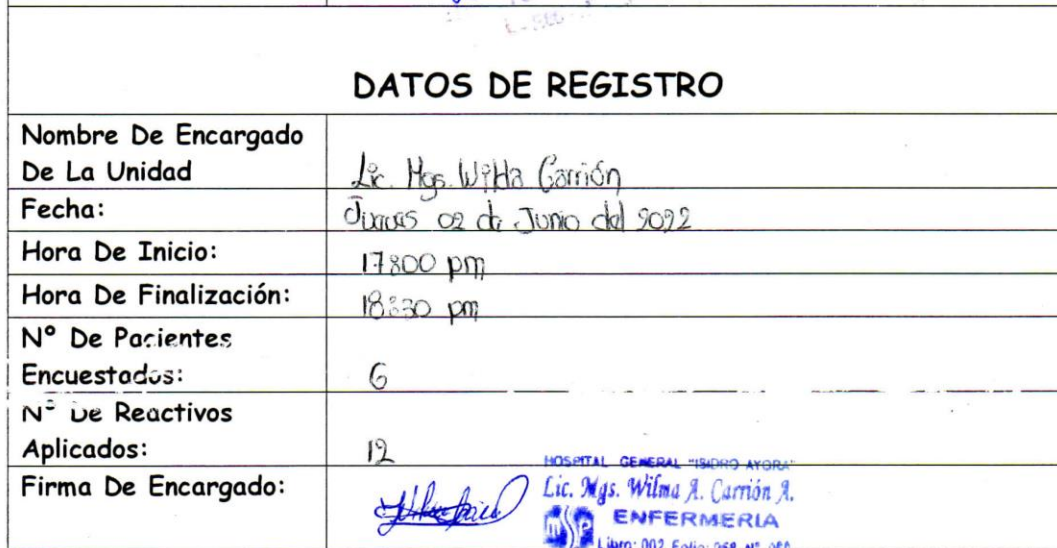 DATOS DE REGISTRO
Nombre De Encargado
De La Unidad
Lic. Mgs. Wilda Carrión
Fecha:
Jueves 02 de Junio del 2022
Hora De Inicio:
17:00 pm
Hora De Finalización:
18:30 pm
Nº De Pacientes
Encuestados:
6
Nº De Reactivos
Aplicados:
12
Firma De Encargado:
HOSPITAL GENERAL "ISIDRO AYORA"
Lic. Mgs. Wilma A. Carrión A.
msp ENFERMERIA
Libro: 002 Folio: 058 Nº